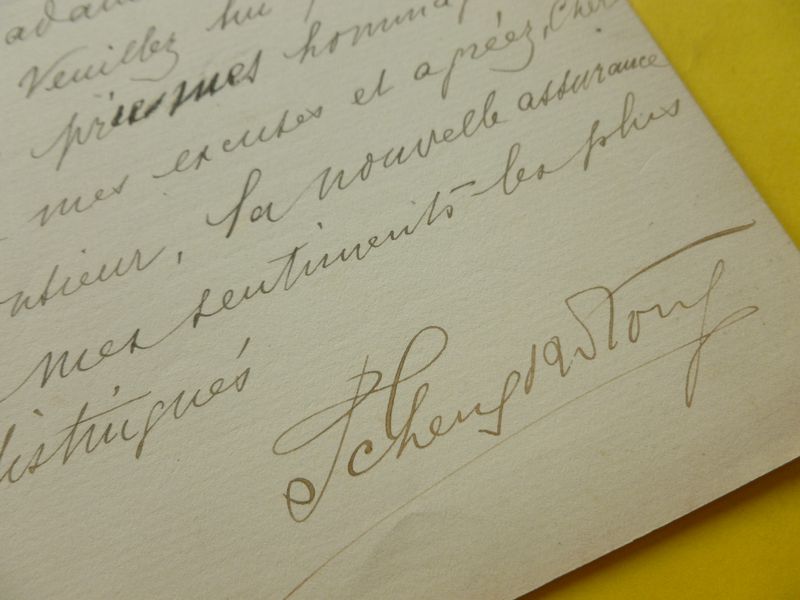 adam
Veuillez lui
prie mes hommag
mes excuses et agréez, Cher
onsieur, la nouvelle assurance
mes sentiments les plus
distingués
Tcheng Ki Tong